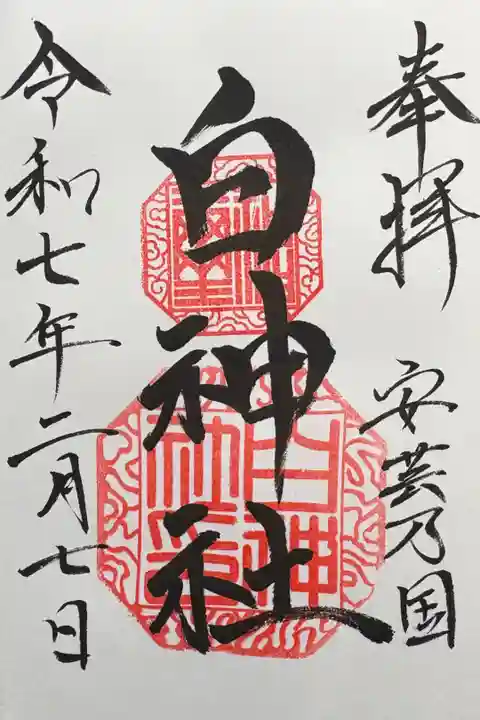 奉拝
安芸乃国
白神社
令和七年二月七日
白神社印